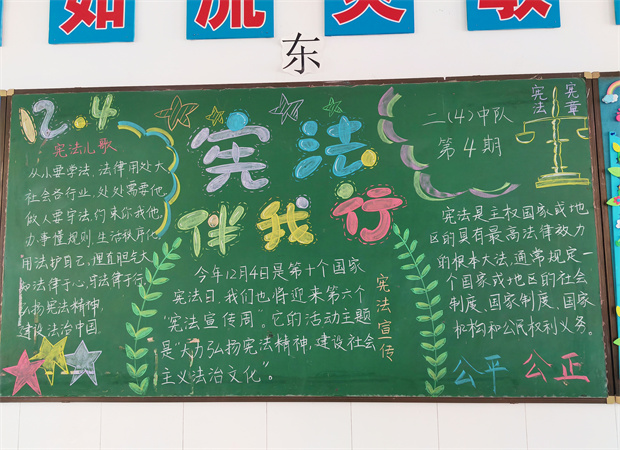 如流
灵敏
东
12.4
宪法伴我行
二(4)中队
第4期
宪法
宪章
宪法儿歌
从小要学法,法律用处大
社会各行业,处处需要他
做人要守法,们来你我他,
办事懂规则,生活秩序化
用法护自己,理直胆气大
知法律于心,守法律于行。
弘扬宪法精神
建设法治中国
今年12月4日是第十个国家
宪法日,我们也将迎来第六个
“宪法宣传周”。它的活动主题
是“大力弘扬宪法精神,建设社会
主义法治文化”。
宪法宣传
宪法是主权国家或地
区的具有最高法律效力
的根本大法,通常规定一
个国家或地区的社会
制度、国家制度、国家
机构和公民权利义务。
公平 公正